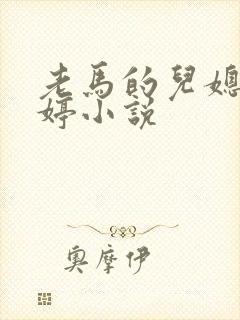 老馬的兒媳
婷小説
奧摩伊